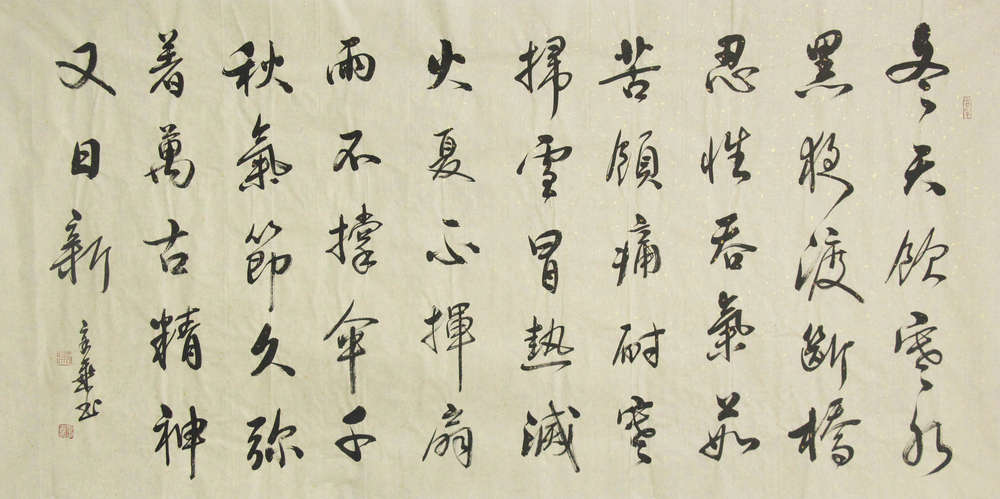 冬天飲寒水
黑夜渡斷橋
忍性吞氣茹
苦領痛耐寒
掃雪冒熱滅
火夏不揮扇
雨不撐傘千
秋氣節久弥
着萬古精神
又日新